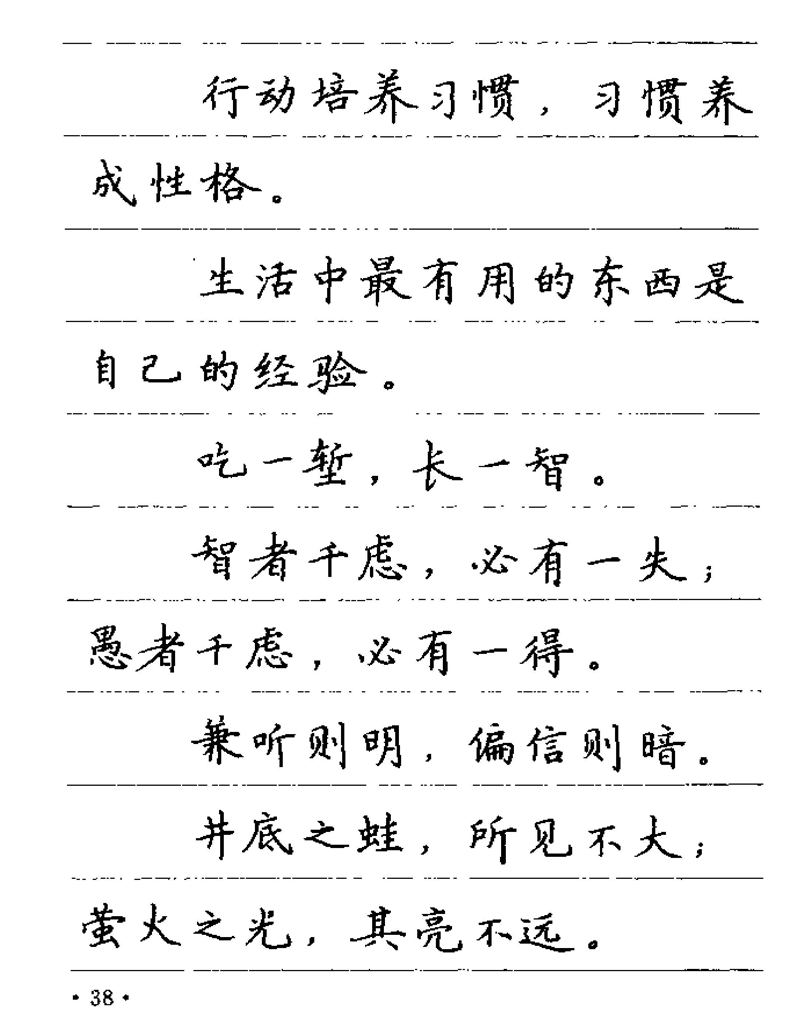 行动培养习惯，习惯养
成性格。
生活中最有用的东西是
自己的经验。
吃一堑，长一智。
智者千虑，必有一失；
愚者千虑，必有一得。
兼听则明，偏信则暗。
井底之蛙，所见不大；
萤火之光，其亮不远。
·38·